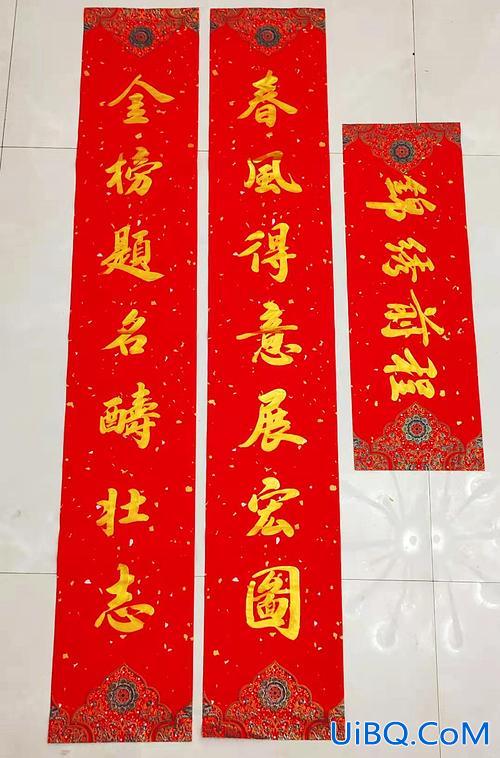 錦綉前程
春風得意展宏圖
金榜題名醻壯志
UiBQ.CoM